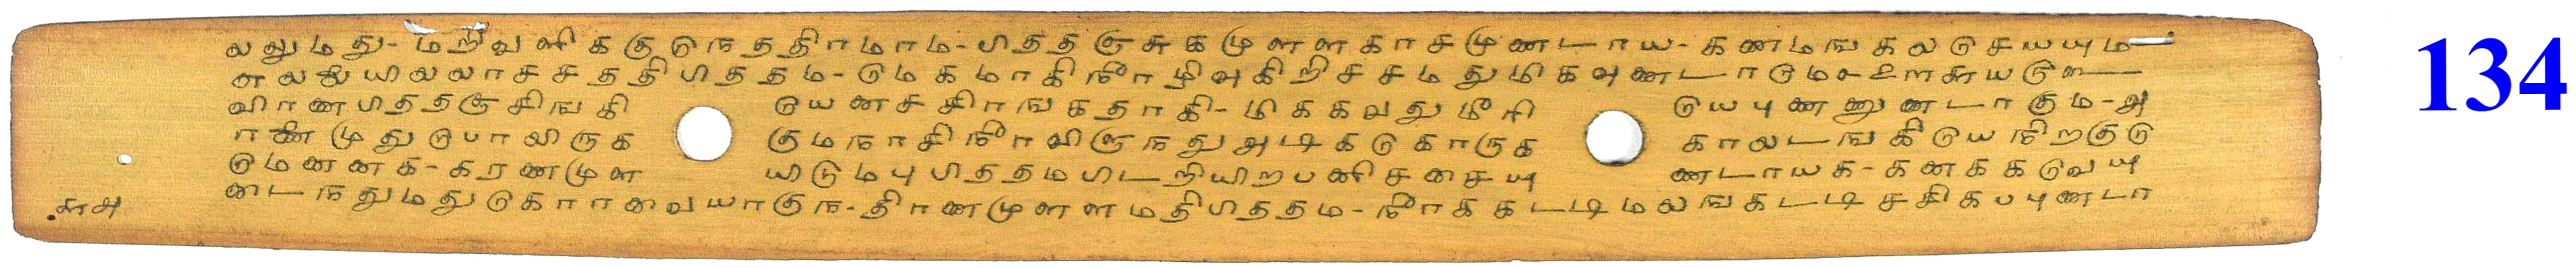 லனுமது-மறிவளிககுடுநததிரமாம-பிததஞசுகமுளளகாசமுணடாய-கணமஙகலடுசயயும
லலயிலலாசசததிபிததம-டுமகமாகிநீரழிவுகிறிசசமதுமிகவுணடாடும
விரணபிததஞசிஙகி டுயனசசிரஙகதாகி-மிககவதுமீரி டுயபுணணுனடாகும-அ
ரணமுதுடுபாலிருக குமநாசிநீரவிருநதுஅடிகடுகாருக காலடஙகிடுயநிறகுடு
டுமனனக-கரணமுள யிடுமபுபிததமபிடறியிறபனிசசையு ணடாயக-கனககடுவயு
டைநதுமதுடுகாரவையாகுந-திரணமுளளமதிபிததம-நீரககடடிமலஙகடடிசசிகபபுணடா
௬அ
134